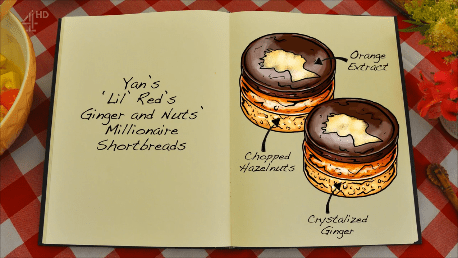 4HD
Yan's
'Lil' Red's
Ginger and Nuts'
Millionaire
Shortbreads
Orange
Extract
Chopped
Hazelnuts
Crystalized
Ginger